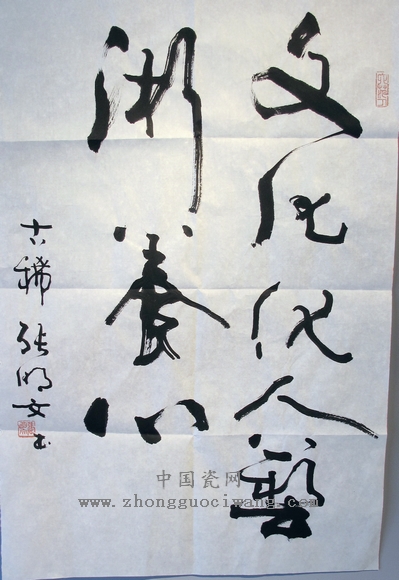 文化化人藝
術養心
古稀 张明文书
中国瓷网
www.zhongguociwang.com